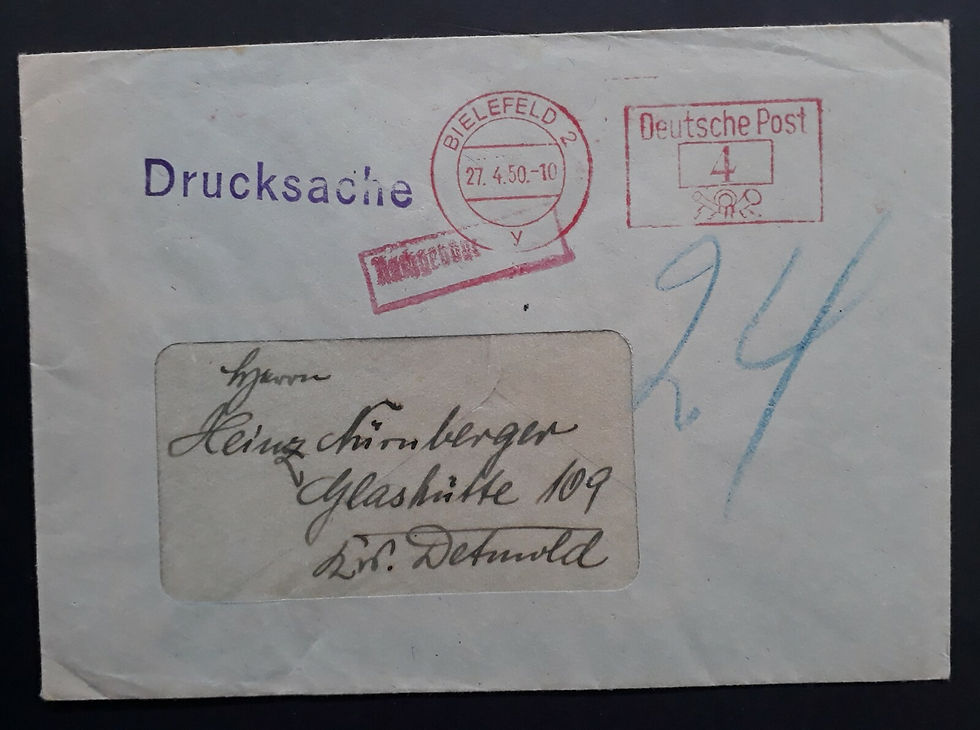 Drucksache
BIELEFELD 2
27. 4.50.-10
y
Deutsche Post
4
Nachgebühr
24
Herrn
Heinz Nürnberger
Glashütte 109
Krs. Detmold